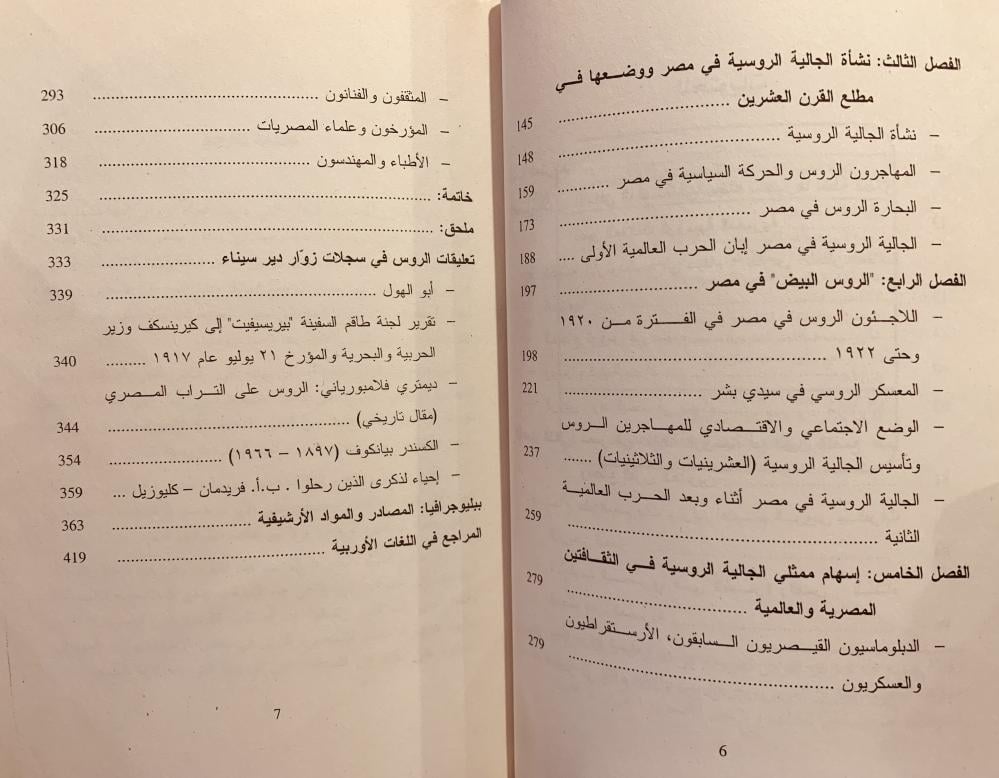 الفصل الثالث: نشأة الجالية الروسية في مصر ووضعها في
مطلع القرن العشرين .......................... 145
– نشأة الجالية الروسية .................................. 148
– المهاجرون الروس والحركة السياسية في مصر ............ 159
– البحارة الروس في مصر ............................. 173
– الجالية الروسية في مصر إبان الحرب العالمية الأولى .... 188
الفصل الرابع: "الروس البيض" في مصر .................. 197
– اللاجئون الروس في مصر في الفترة من ١٩٢٠
وحتى ١٩٢٢ ....................................... 198
– المعسكر الروسي في سيدي بشر ..................... 221
– الوضع الاجتماعي والاقتصادي للمهاجرين الروس
وتأسيس الجالية الروسية (العشرينيات والثلاثينيات) ....... 237
– الجالية الروسية في مصر أثناء وبعد الحرب العالمية
الثانية ................................................ 259
الفصل الخامس: إسهام ممثلي الجالية الروسية في الثقافتين
المصرية والعالمية ............................ 279
– الدبلوماسيون القيصريون السابقون، الأرستقراطيون
والعسكريون .......................................... 279
6
– المثقفون والفنانون .................................... 293
– المؤرخون وعلماء المصريات ......................... 306
– الأطباء والمهندسون ................................... 318
خاتمة: ...................................................... 325
ملحق: ...................................................... 331
تعليقات الروس في سجلات زوّار دير سيناء ................ 333
– أبو الهول .............................................. 339
– تقرير لجنة طاقم السفينة "بيريسيفيت" إلى كيرينسكف وزير
الحربية والبحرية والمؤرخ ٢١ يوليو عام ١٩١٧ ......... 340
– ديمتري فلامبورياني: الروس على التراب المصري
(مقال تاريخي) ........................................ 344
– الكسندر بيانكوف (١٨٩٧ – ١٩٦٦) .................... 354
– إحياء لذكرى الذين رحلوا . ب.أ. فريدمان – كليوزيل ... 359
ببليوجرافيا: المصادر والمواد الأرشيفية ..................... 363
المراجع في اللغات الأوربية .................................. 419
7